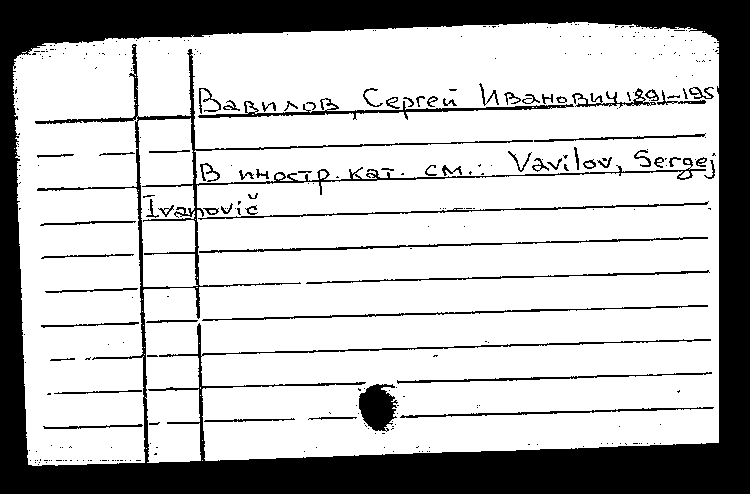 Вавилов, Сергей Иванович, 1891-195
В иностр. кат. см.: Vavilov, Sergej
Ivanovič